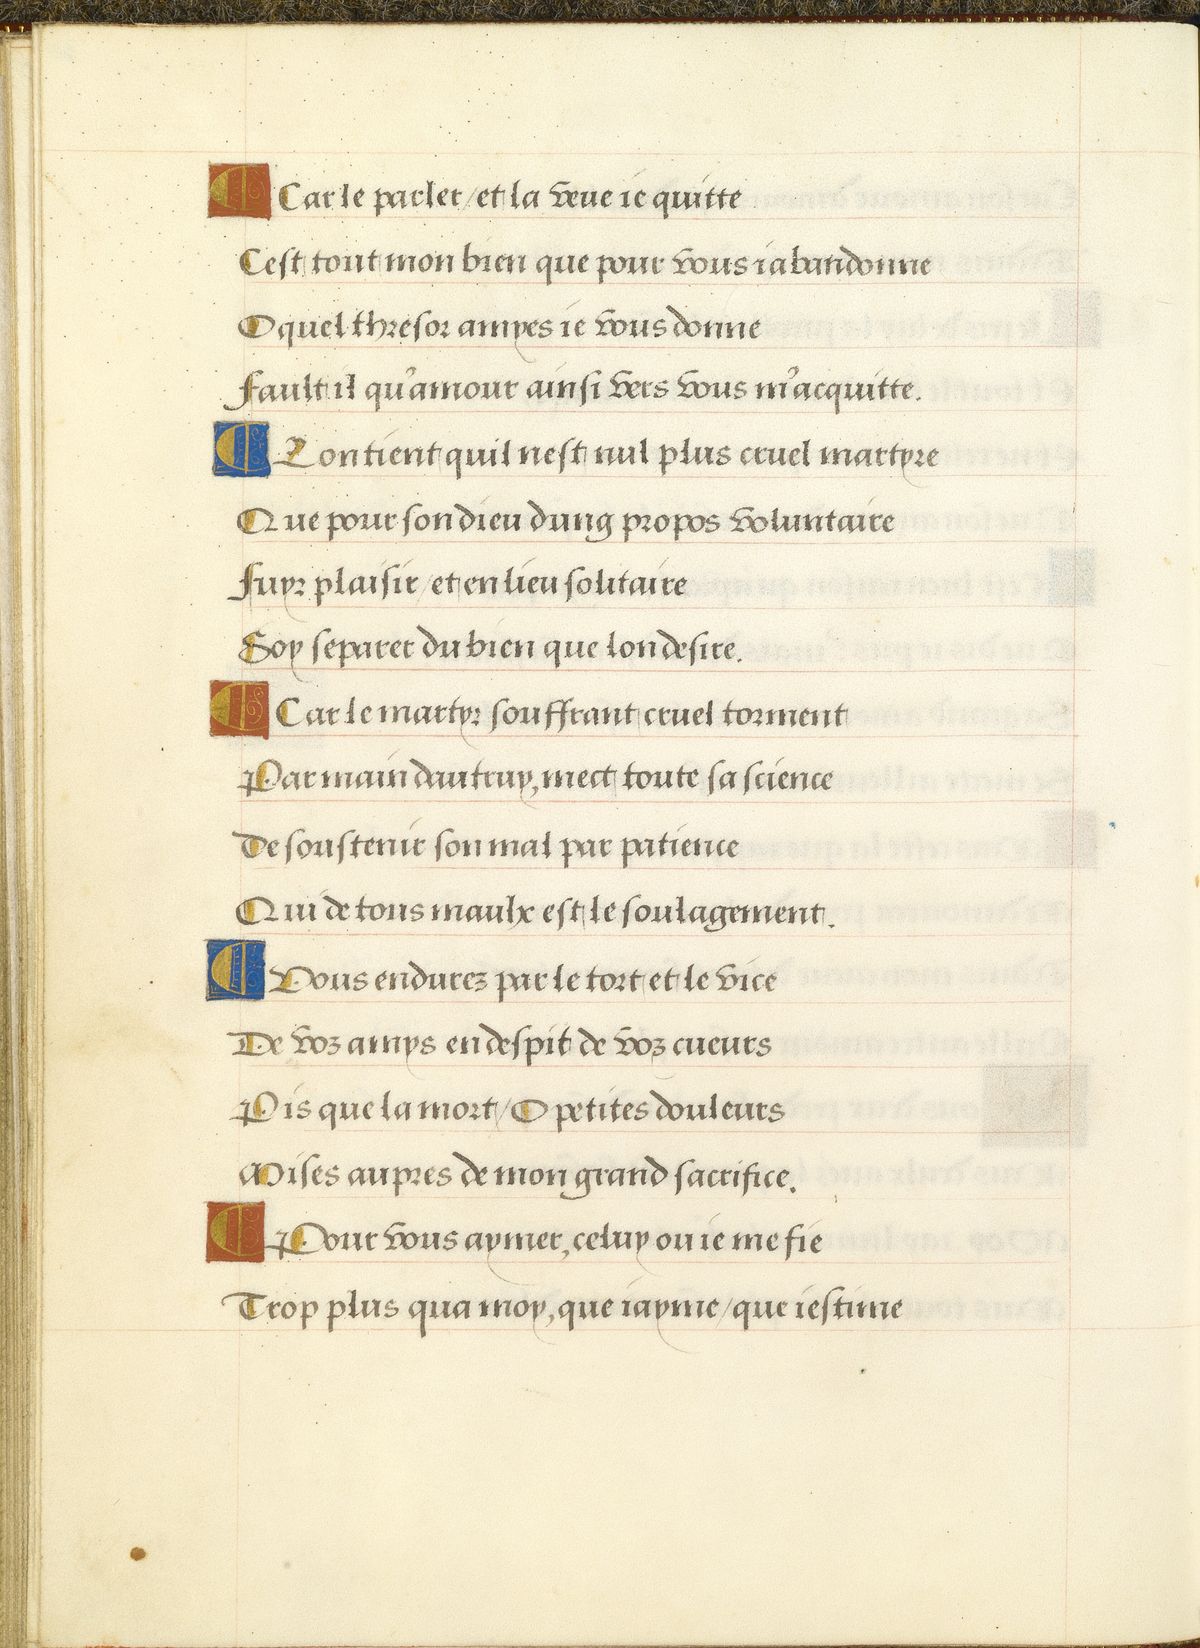 Car le parler / et la veue ie quitte
Cest tout mon bien que pour vous iabandonne
O quel thresor amyes ie vous donne
Fault il qu'amour ainsi vers vous m'acquitte.
Lon tient quil nest nul plus cruel martyre
Que pour son dieu dung propos voluntaire
Fuyr plaisir / et en lieu solitaire
Soy separer du bien que lon desire.
Car le martyr souffrant cruel torment
Par main dautruy, mect toute sa science
De soustenir son mal par patience
Qui de tous maulx est le soulagement.
Vous endurez par le tort et le vice
De voz amys en despit de voz cueurs
Pis que la mort / O petites douleurs
Mises aupres de mon grand sacrifice.
Pour vous aymer, celuy ou ie me fie
Trop plus qua moy, que iayme / que iestime